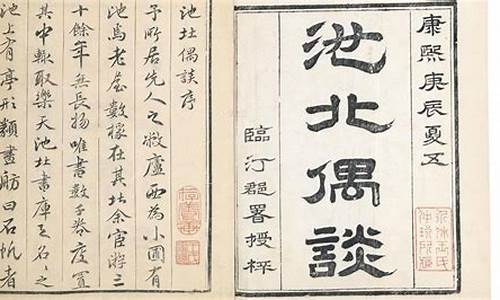 康熙庚辰夏五
池北偶談
臨汀郡署授梓
池北偶談序
予所居先人之敝廬西為小圃有
池焉老屋數椽在其北余宦游三
十餘年無長物唯書數千卷庋置
其中輒取樂天池北書庫之名之
池上有亭形類畫舫曰石帆者